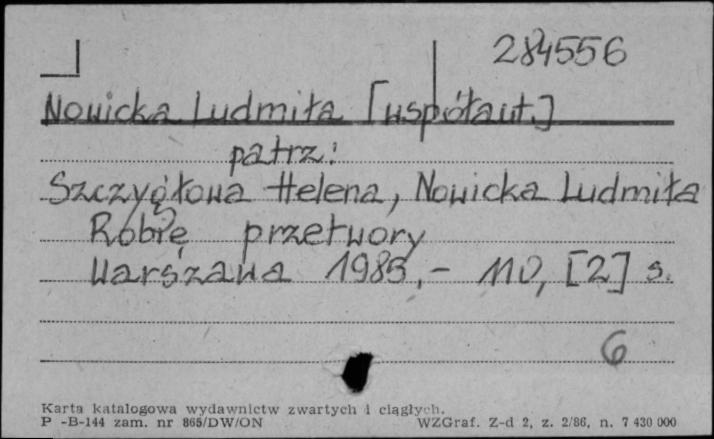 284556
Nowicka Ludmiła [współaut.]
patrz:
Szczygłowa Helena, Nowicka Ludmiła
Robię przetwory
Warszawa 1985,- 110, [2] s.
6
Karta katalogowa wydawnictw zwartych i ciągłych.
P -B-144 zam. nr 865/DW/ON WZGraf. Z-d 2, z. 2/86, n. 7 430 000